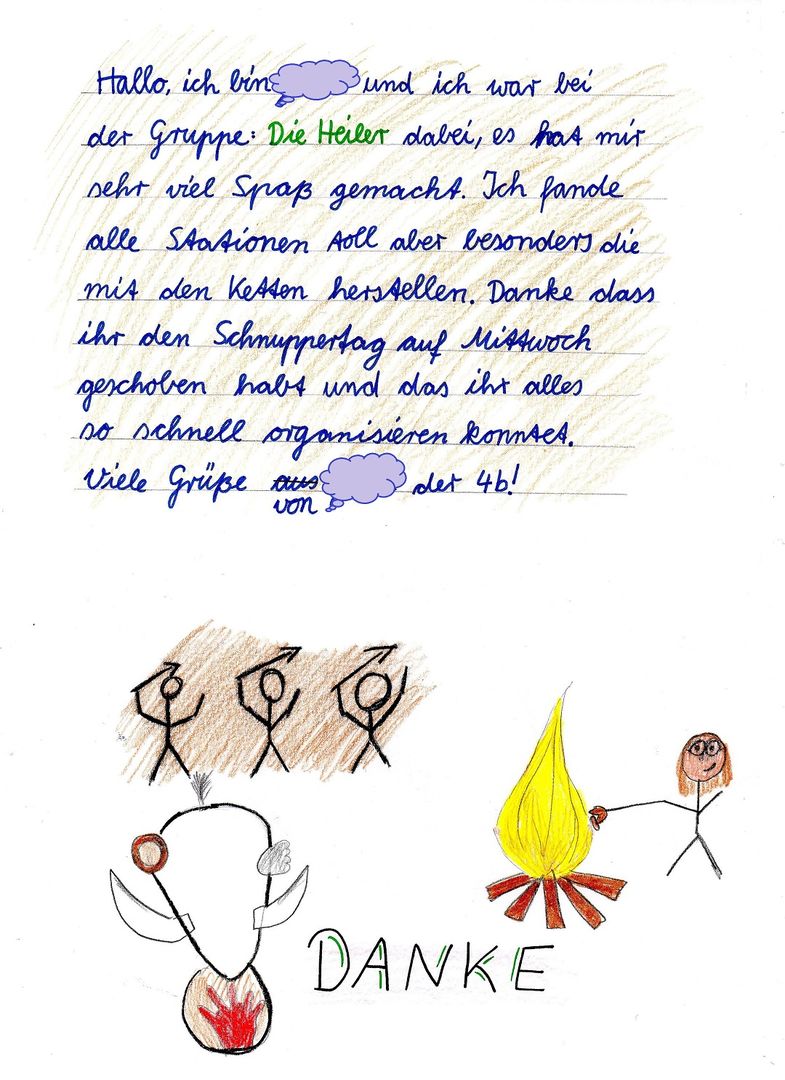 Hallo, ich bin und ich war bei
der Gruppe: Die Heiler dabei, es hat mir
sehr viel Spaß gemacht. Ich fande
alle Stationen toll aber besonders die
mit den Ketten herstellen. Danke dass
ihr den Schnuppertag auf Mittwoch
geschoben habt und das ihr alles
so schnell organisieren konntet.
Viele Grüße aus der 4b!
von
DANKE